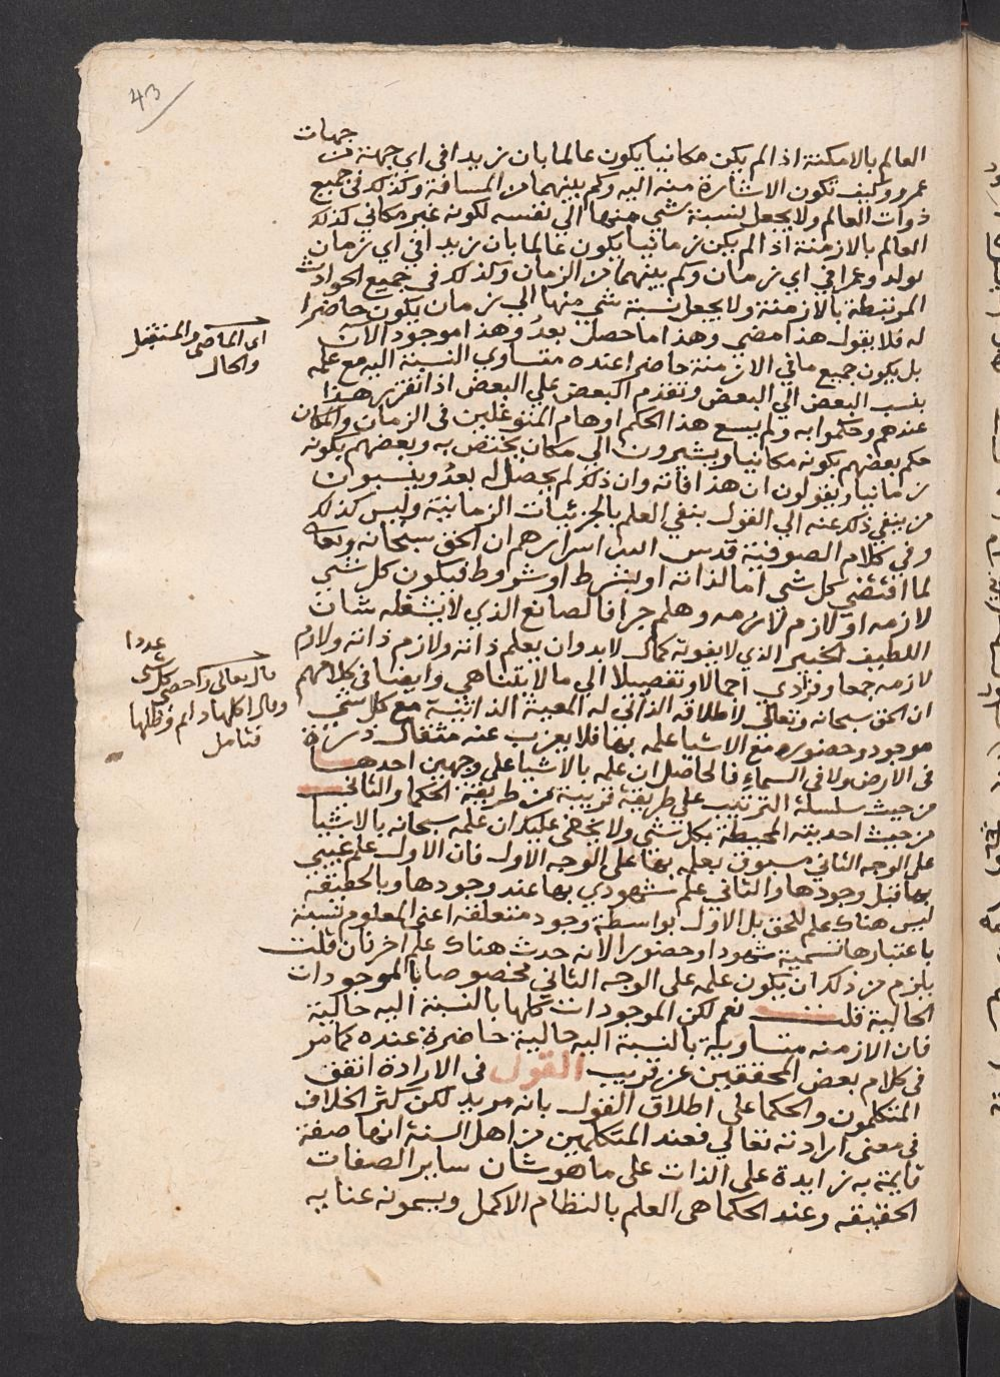 43
جهات
العالم بالامكنة اذ الم يكن مكانيا يكون عالما بان زيدا في اي جهة من
عمرو وكيف تكون الاشارة منه اليه وكم بينهما من المسافة وكذلك في جميع
ذوات العالم ولا يجعل لنسبة شي منها الي نفسه لكونه غير مكاني كذلك
العالم بالازمنة اذ الم يكن زمانيا يكون عالما بان زيدا في اي زمان
يولد وعمرا في اي زمان وكم بينهما من الزمان وكذلك في جميع الحوادث
المرتبطة بالازمنة ولا يجعل نسبة شي منها الي زمان يكون حاضرا
له فلا يقول هذا مضي وهذا ما حصل بعدُ وهذا موجود الان
بل يكون جميع ما في الازمنة حاضرا عنده متساوي النسبة اليه مع علمه
بنسب البعض الي البعض وتقدم البعض علي البعض اذا تقرر هذا
عندهم وحكموا به ولم يسع هذا الحكم اوهام المتوغلين في الزمان والمكان
حكم بعضهم بكونه مكانيا ويشيرون الي مكان يختص به وبعضهم بكونه
زمانيا ويقولون ان هذا فاته وان ذلك لم يحصل له بعدُ وينسبون
من ينفي ذلك عنه الي القول بنفي العلم بالجزئيات الزمانية وليس كذلك
وفي كلام الصوفية قدس الله اسرارهم ان الحق سبحانه وتعالى
لما اقتضي كل شي اما لذاته او بشرط او شروط فيكون كل شي
لازمه او لازم لازمه وهلم جرا فالصانع الذي لا يشغله شان
اللطيف الخبير الذي لا يفوته كمال لا بد وان يعلم ذاته ولازم ذاته ولازم
لازمه جمعا وفرادي اجمالا وتفصيلا الي ما لا يتناهي وايضا في كلامهم
ان الحق سبحانه وتعالي لاطلاقه الذاتي له المعية الذاتية مع كل شي
موجود وحضوره مع الاشيا علمه بها فلا يعزب عنه مثقال ذرة
في الارض ولا في السماءِ فالحاصل ان علمه بالاشيا علي وجهين احدها
من حيث سلسلة الترتيب علي طريقة قريبة من طريقة الحكما والثاني
من حيث احديته المحيطة بكل شي ولا يخفي عليك ان علمه سبحانه بالاشيا
علي الوجه الثاني مسبوق بعلمه بها علي الوجه الاول فان الاول علم غيبي
بها قبل وجودها والثاني علم شهودي بها عند وجودها وبالحقيقه
ليس هناك علم للحق بل الاول بواسطة وجود متعلقه اعني المعلوم نسبة
باعتبارها نسمية شهودا وحضورا لا انه حدث هناك علم اخر فان قلت
يلزم من ذلك ان يكون علمه علي الوجه الثاني مخصوصا بالموجودات
الحالية قلت نعم لكن الموجودات كلها بالنسبة اليه حالية
فان الازمنه متساوية بالنسبة اليه حالية حاضرة عنده كما مر
في كلام بعض المحققين عن قريب القول في الارادة اتفق
المتكلمون والحكما علي اطلاق القول بانه مريد لكن كثر الخلاف
في معني ارادته تعالي فعند المتكلمين من اهل السنة انها صفة
قايمة به زايدة علي الذات علي ما هو شان ساير الصفات
الحقيقه وعند الحكما هي العلم بالنظام الاكمل ويسمونه عنايه
اي الماضي والمستقبل
والحال
قال تعالى واحصى كل شي عددا
وقال اكلها دايم وظلها
فتامل